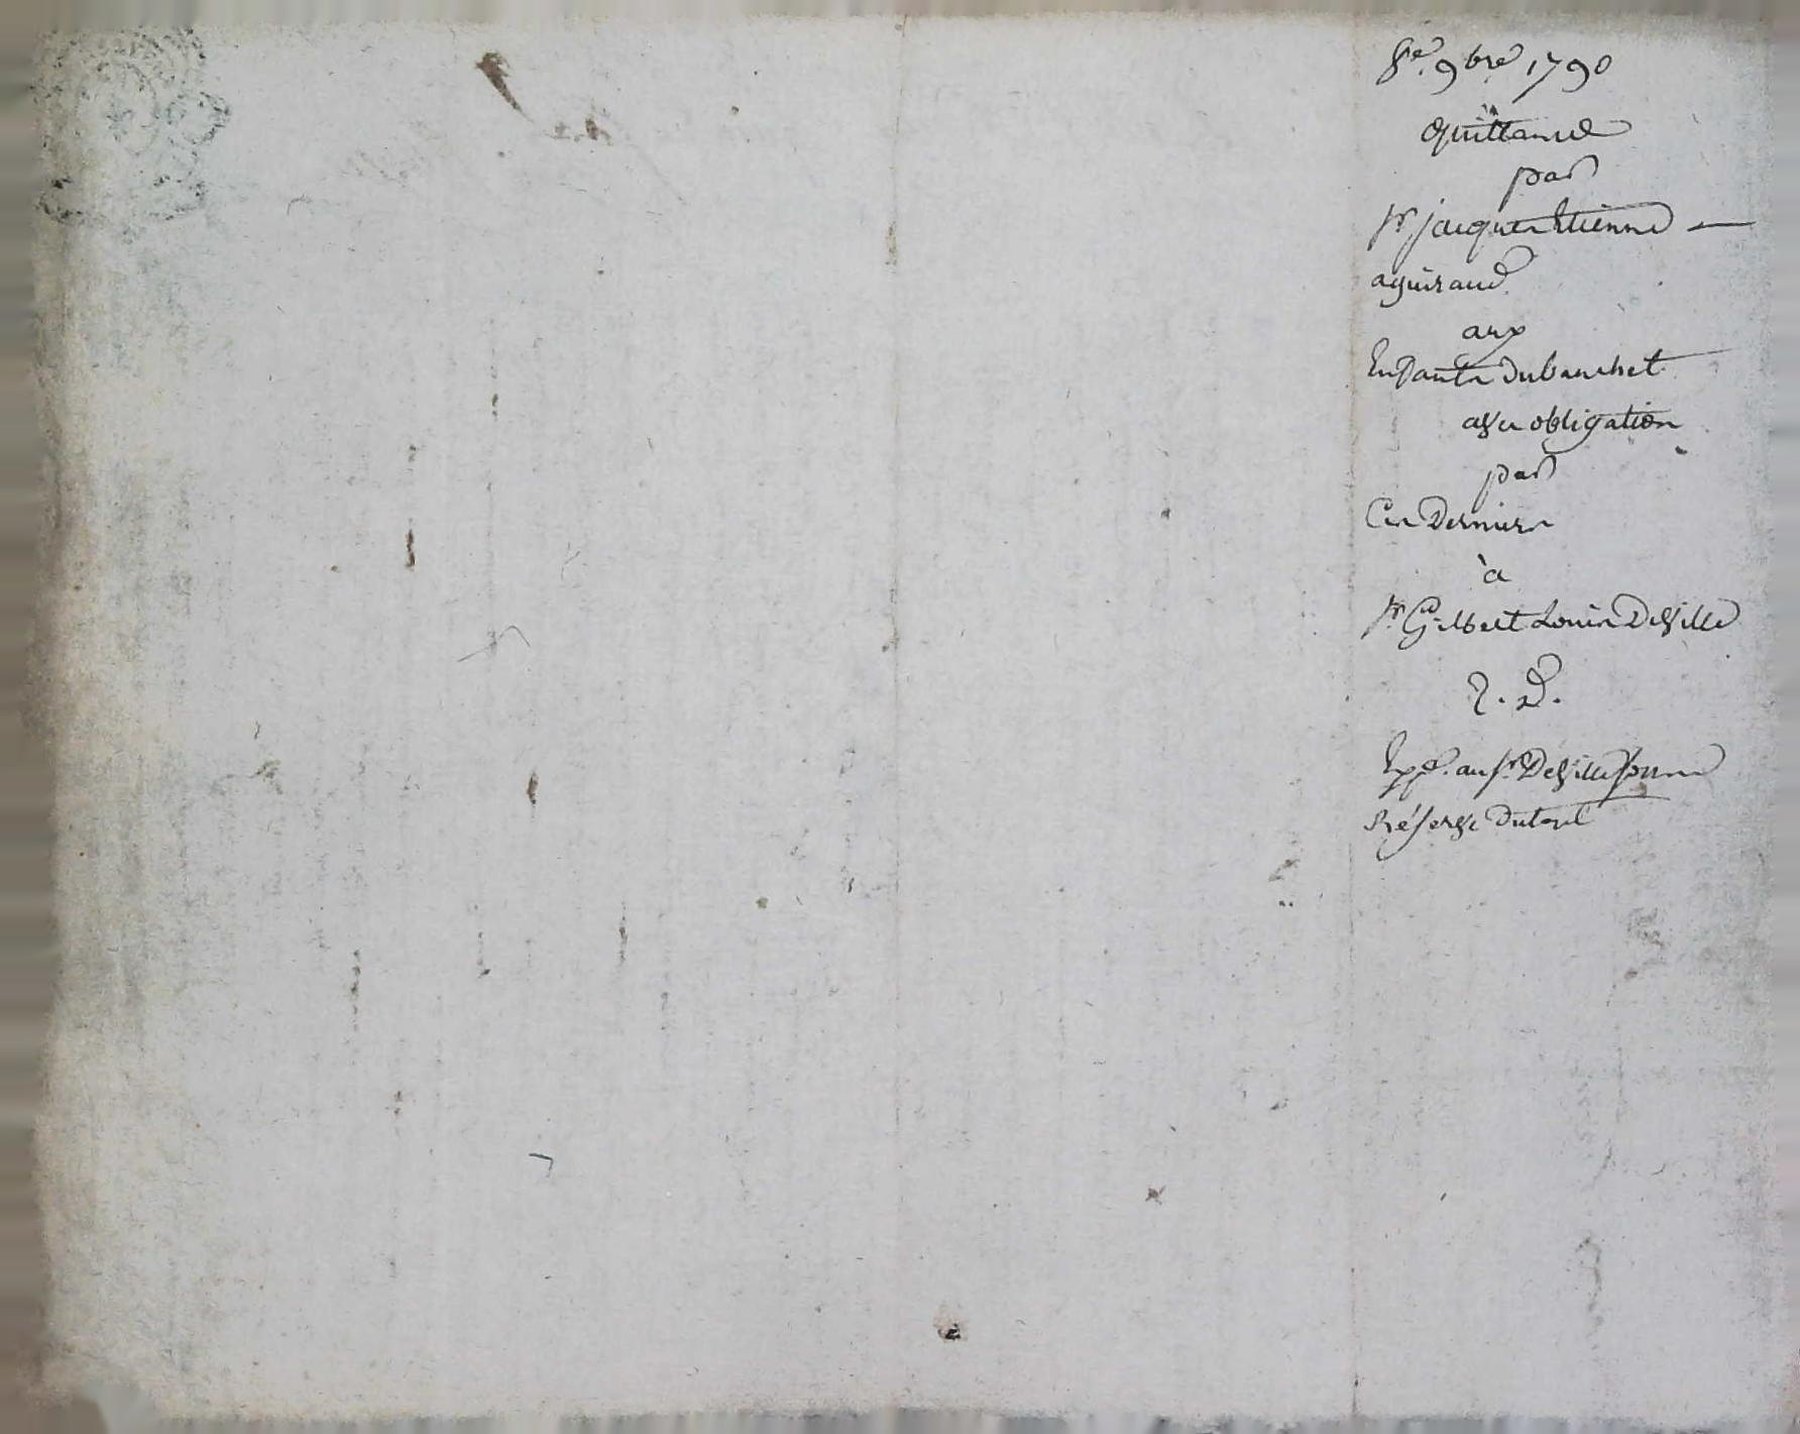 8e. 9bre 1790
Quittance
par
sr jacques Etienne —
aguiraud
aux
Enfants Dubanchet
avec obligation
par
Ces Derniers
à
sr Gilbert Louis Deville
Expe. au sr Deville
Réserve